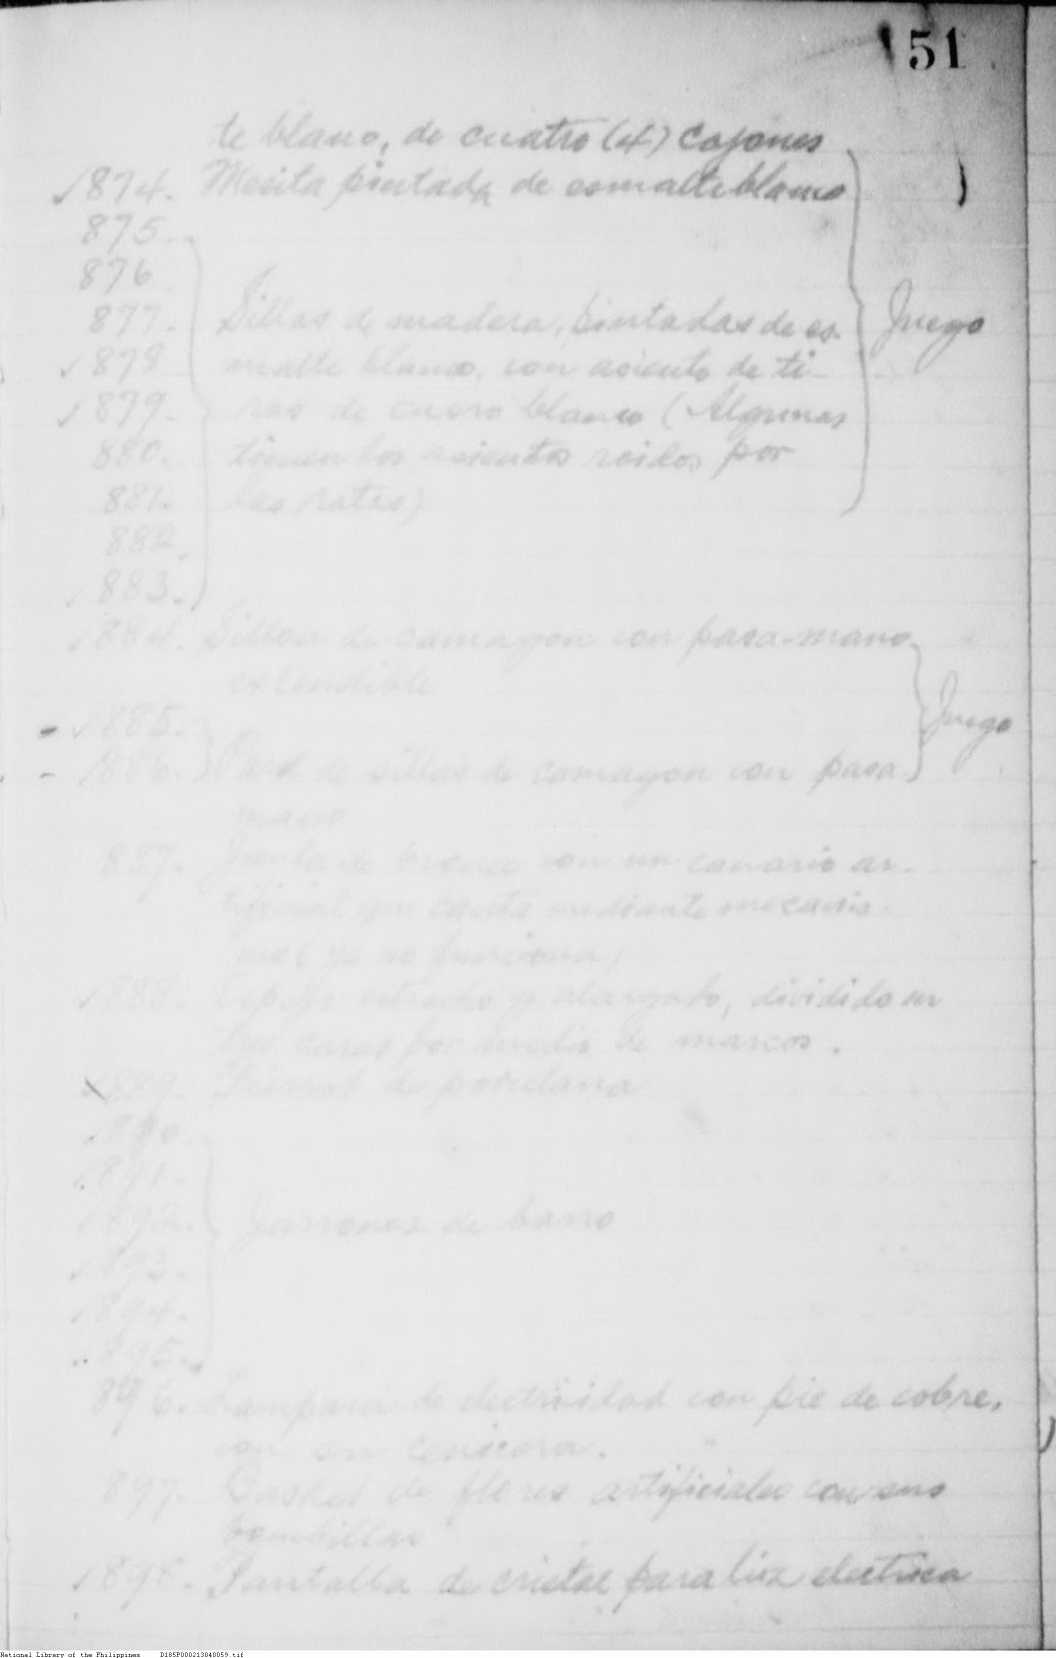 51
te blanco, de cuatro (4) cajones
874. Mesita pintada de esmalte blanco
875.
876
877. Sillas de madera, pintadas de es-
Juego
878 malte blanco, con asiento de ti-
879. ras de cuero blanco (Algunas
880. tienen los asientos roidos por
881. las ratas)
882.
883.
884. Sillon de camagon con pasa-mano
extensible
885.
Juego
886. Pard de sillas de camagon con pasa
mano
887. Jaula de bronce con un canario ar-
tificial que canta mediante mecanis-
mo ( ya no funciona)
888. Espejo estrecho y alargado, dividido en
tres caras por medio de marcos.
889. de porcelana
890.
891.
892. Jarrones de barro
893.
894.
895.
896. Lampara de electricidad con pie de cobre,
con su cenicera.
897. Basket de flores artificiales con sus
bombillas
898. Pantalla de cristal para luz electrica
National Library of the Philippines D185P000213040059.tif